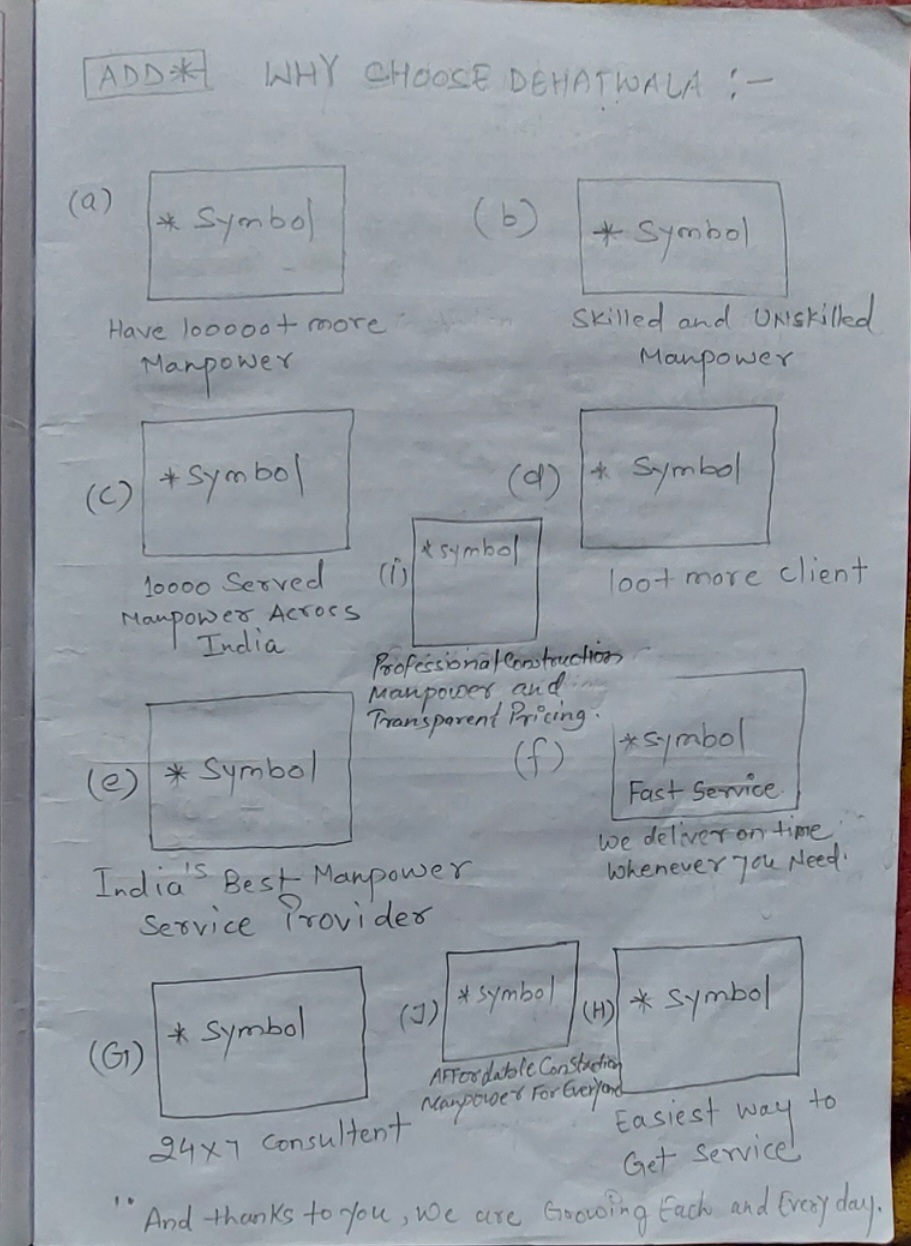 ADD* WHY CHOOSE DEHATWALA :-
(a)
* Symbol
Have 100000+ more
Manpower
(b)
* Symbol
Skilled and UNskilled
Manpower
(c)
* Symbol
10000 Served
Manpower Across
India
(d)
* Symbol
100+ more client
(i)
* symbol
Professional Construction
Manpower and
Transparent Pricing.
(e)
* Symbol
India's Best Manpower
Service Provider
(f)
* Symbol
Fast Service
we deliver on time
whenever you Need.
(G)
* Symbol
24x7 Consultent
(J)
* symbol
AFFordable Constuction
Manpower For Everyone
(H)
* Symbol
Easiest way to
Get Service
" And thanks to you, we are Growing Each and Every day.